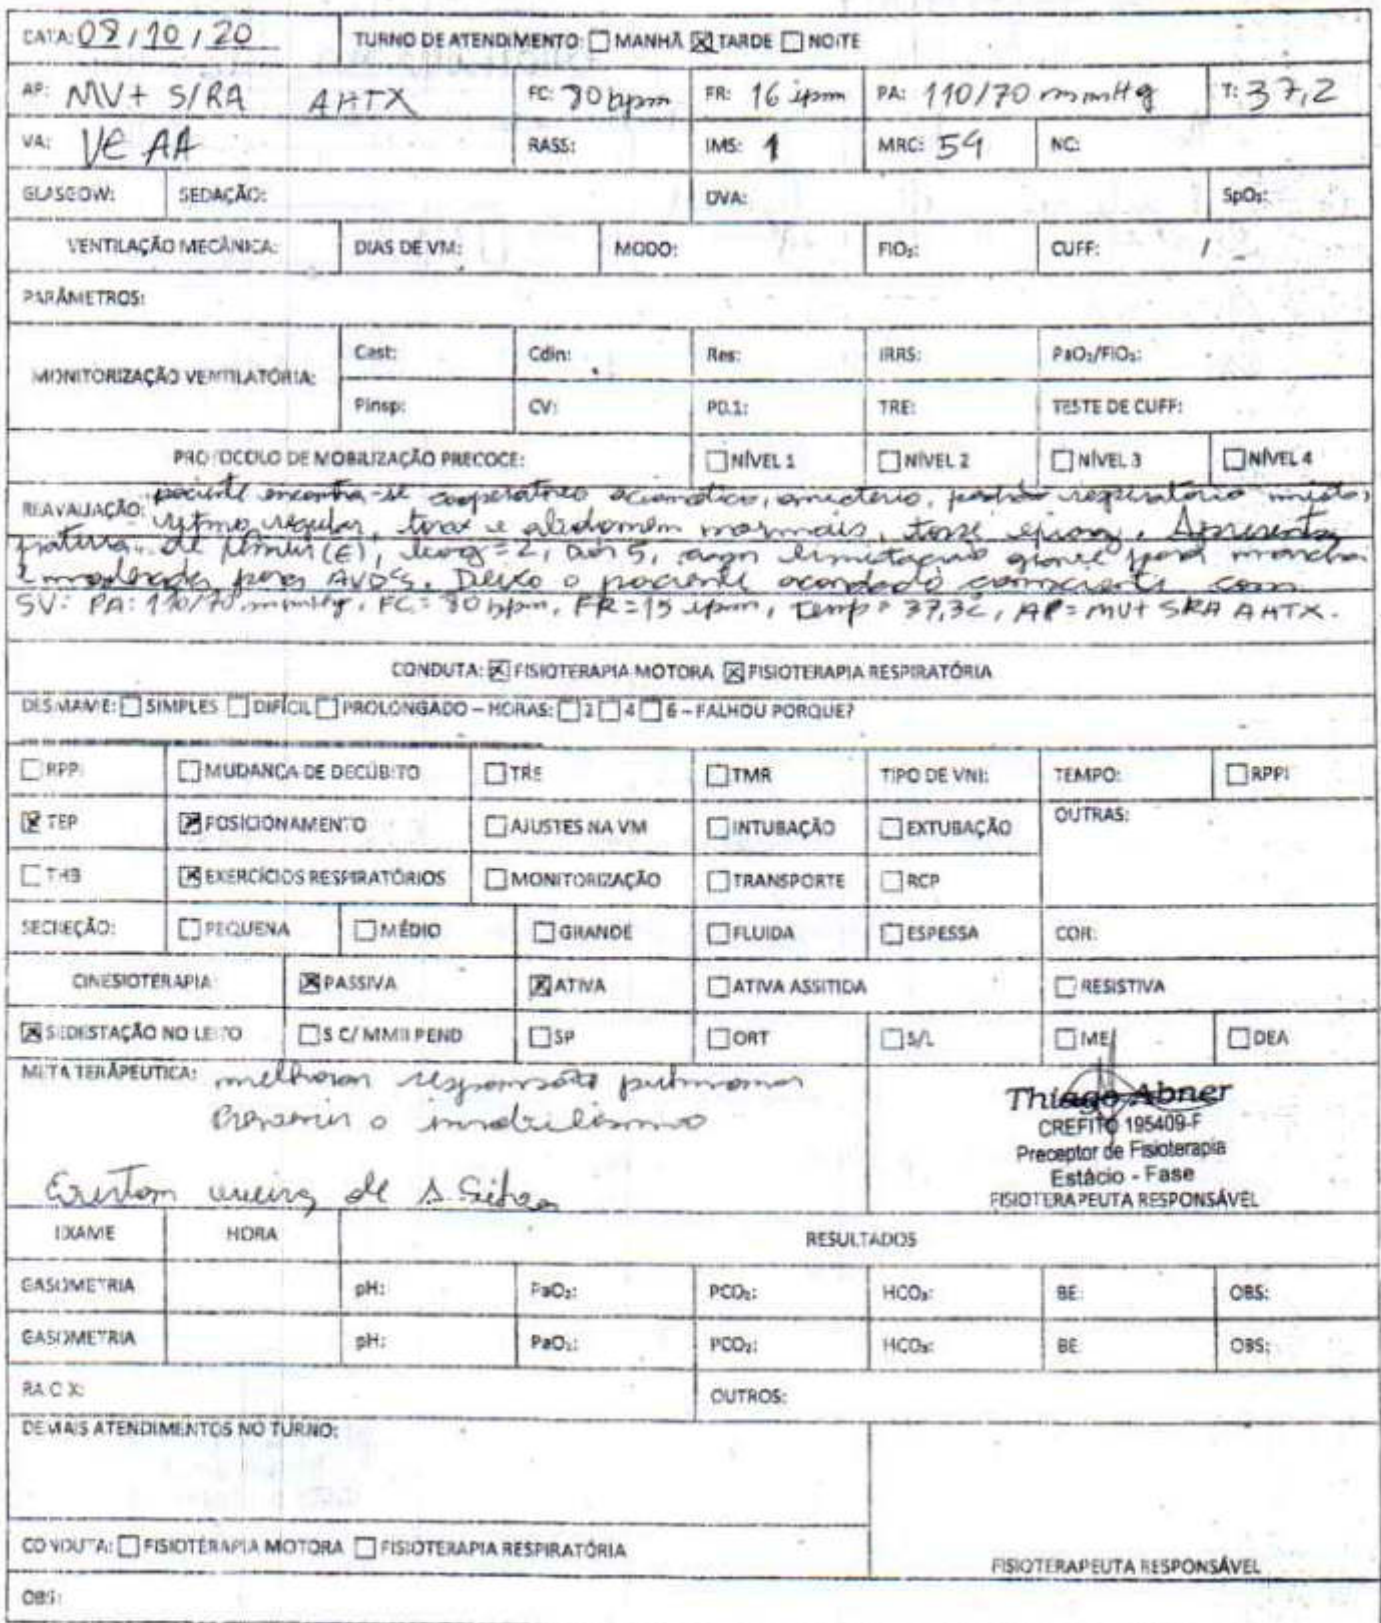 DATA: 08/10/20 TURNO DE ATENDIMENTO: ☐ MANHÃ ☒ TARDE ☐ NOITE
AP: MV+ S/RA AHTX FC: 80 bpm FR: 16 ipm PA: 110/70 mmHg T: 37,2
VA: VE AA RASS: IMS: 1 MRC: 54 NC:
GLASGOW: SEDAÇÃO: DVA: SpO₂:
VENTILAÇÃO MECÂNICA: DIAS DE VM: MODO: FIO₂: CUFF: /
PARÂMETROS:
MONITORIZAÇÃO VENTILATÓRIA: Cest: Cdin: Res: IRRS: PaO₂/FIO₂:
Pinsp: CV: P0.1: TRE: TESTE DE CUFF:
PROTOCOLO DE MOBILIZAÇÃO PRECOCE: ☐ NÍVEL 1 ☐ NÍVEL 2 ☐ NÍVEL 3 ☐ NÍVEL 4
REAVALIAÇÃO: paciente encontra-se cooperativo acianotico, padrão respiratório misto,
ritmo regular, torax e abdomem normais, tosse eficaz. Apresenta
fratura de fêmur (E), 5, limitação grave para marcha
e moderada para AVD'S. Deixo o paciente acordado consciente com
SV: PA: 110/70 mmHg, FC = 80 bpm, FR = 15 ipm, Temp = 37,3C, AP = MV+ SRA AHTX.
CONDUTA: ☒ FISIOTERAPIA MOTORA ☒ FISIOTERAPIA RESPIRATÓRIA
DESMAME: ☐ SIMPLES ☐ DIFÍCIL ☐ PROLONGADO – HORAS: ☐ 2 ☐ 4 ☐ 6 – FALHOU PORQUE?
☐ RPP ☐ MUDANÇA DE DECÚBITO ☐ TRE ☐ TMR TIPO DE VNI: TEMPO: ☐ RPPI
☒ TEP ☒ POSICIONAMENTO ☐ AJUSTES NA VM ☐ INTUBAÇÃO ☐ EXTUBAÇÃO OUTRAS:
☐ THB ☒ EXERCÍCIOS RESPIRATÓRIOS ☐ MONITORIZAÇÃO ☐ TRANSPORTE ☐ RCP
SECREÇÃO: ☐ PEQUENA ☐ MÉDIO ☐ GRANDE ☐ FLUIDA ☐ ESPESSA COR:
CINESIOTERAPIA: ☒ PASSIVA ☒ ATIVA ☐ ATIVA ASSITIDA ☐ RESISTIVA
☒ SEDESTAÇÃO NO LEITO ☐ S C/ MMII PEND ☐ SP ☐ ORT ☐ S/L ☐ ME ☐ DEA
META TERÂPEUTICA: melhorar pulmonar
o imobilismo
de S. Silva
Thiago Abner
CREFITO 195409-F
Preceptor de Fisioterapia
Estácio - Fase
FISIOTERAPEUTA RESPONSÁVEL
EXAME HORA RESULTADOS
GASOMETRIA pH: PaO₂: PCO₂: HCO₃: BE: OBS:
GASOMETRIA pH: PaO₂: PCO₂: HCO₃: BE: OBS:
RAIO X: OUTROS:
DEMAIS ATENDIMENTOS NO TURNO:
CONDUTA: ☐ FISIOTERAPIA MOTORA ☐ FISIOTERAPIA RESPIRATÓRIA
FISIOTERAPEUTA RESPONSÁVEL
OBS: